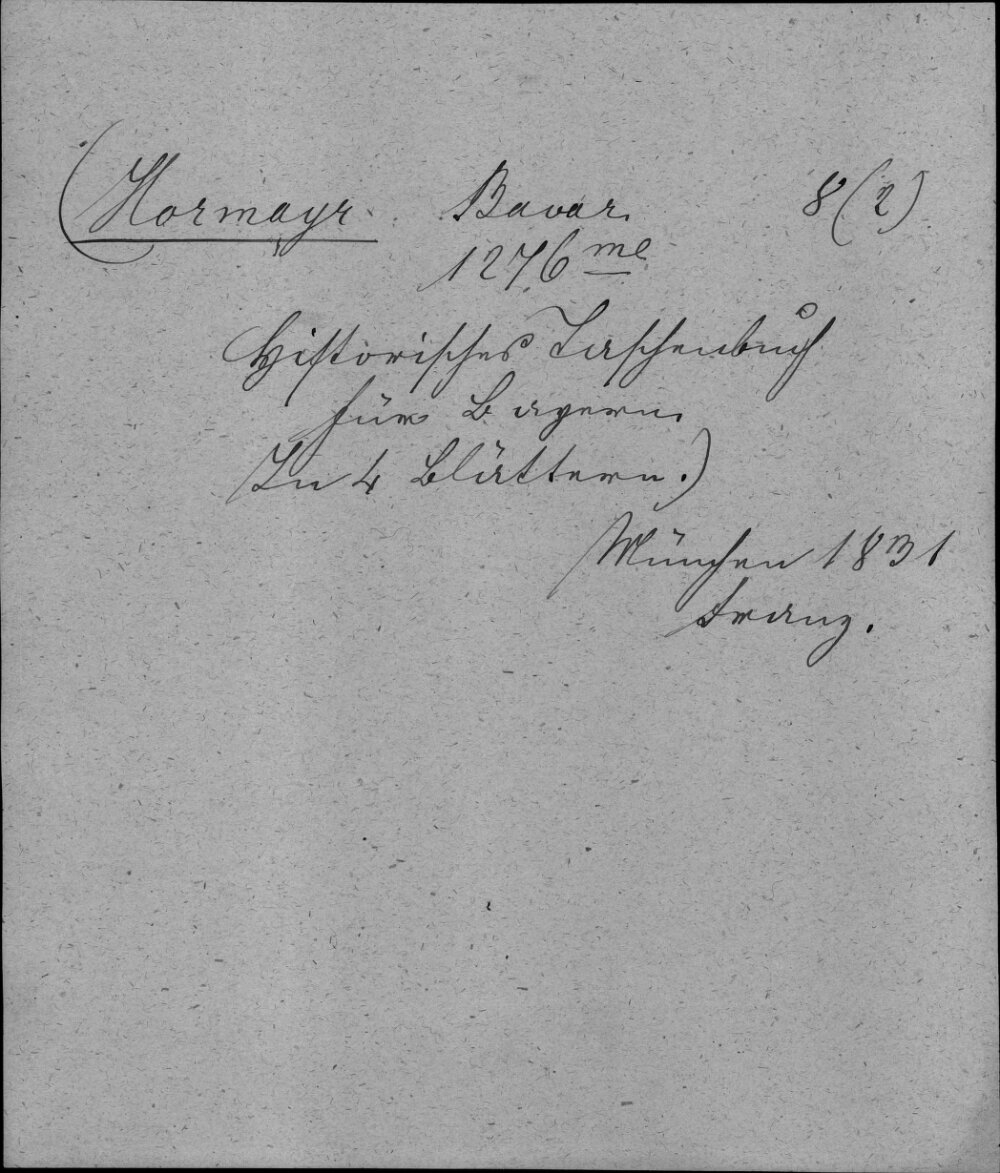 (Hormayr. Bavar. 8 (2)
1276 me
Historisches Taschenbuch
für Bayern.
In 4 Blättern.)
München 1831
Franz.